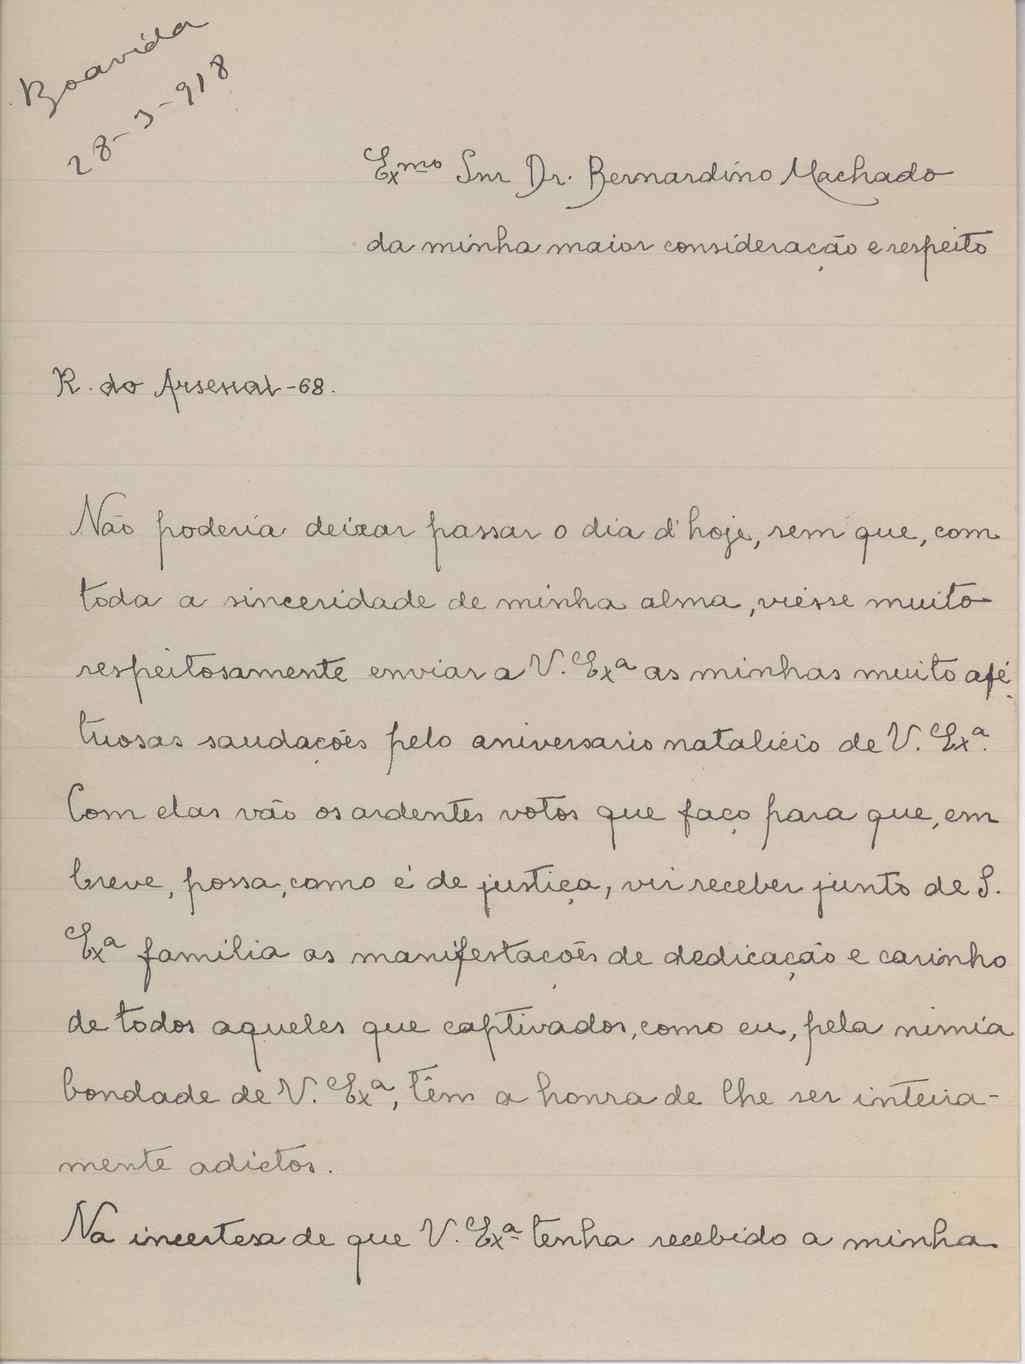 Boavida
28-3-918
Exmo Snr Dr. Bernardino Machado
da minha maior consideração e respeito
R. do Arsenal-68.
Não poderia deixar passar o dia d'hoje, sem que, com
toda a sinceridade de minha alma, viésse muito
respeitosamente enviar a V. Exa as minhas muito afé-
tuosas saudações pelo aniversario natalicio de V. Exa.
Com elas vão os ardentes votos que faço para que, em
breve, possa, como é de justiça, vir receber junto de S.
Exa familia as manifestações de dedicação e carinho
de todos aqueles que captivados, como eu, pela nimia
bondade de V. Exa, têm a honra de lhe ser inteira-
mente adictos.
Na incertesa de que V. Exa tenha recebido a minha